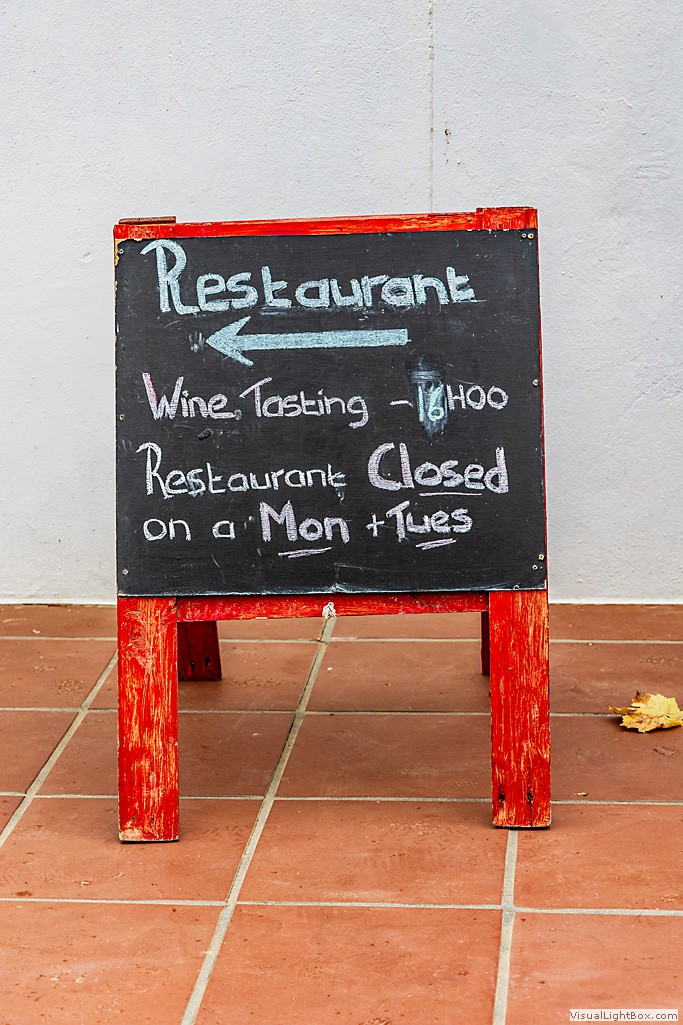 Restaurant
Wine Tasting - 16H00
Restaurant Closed
on a Mon + Tues
VisualLightBox.com